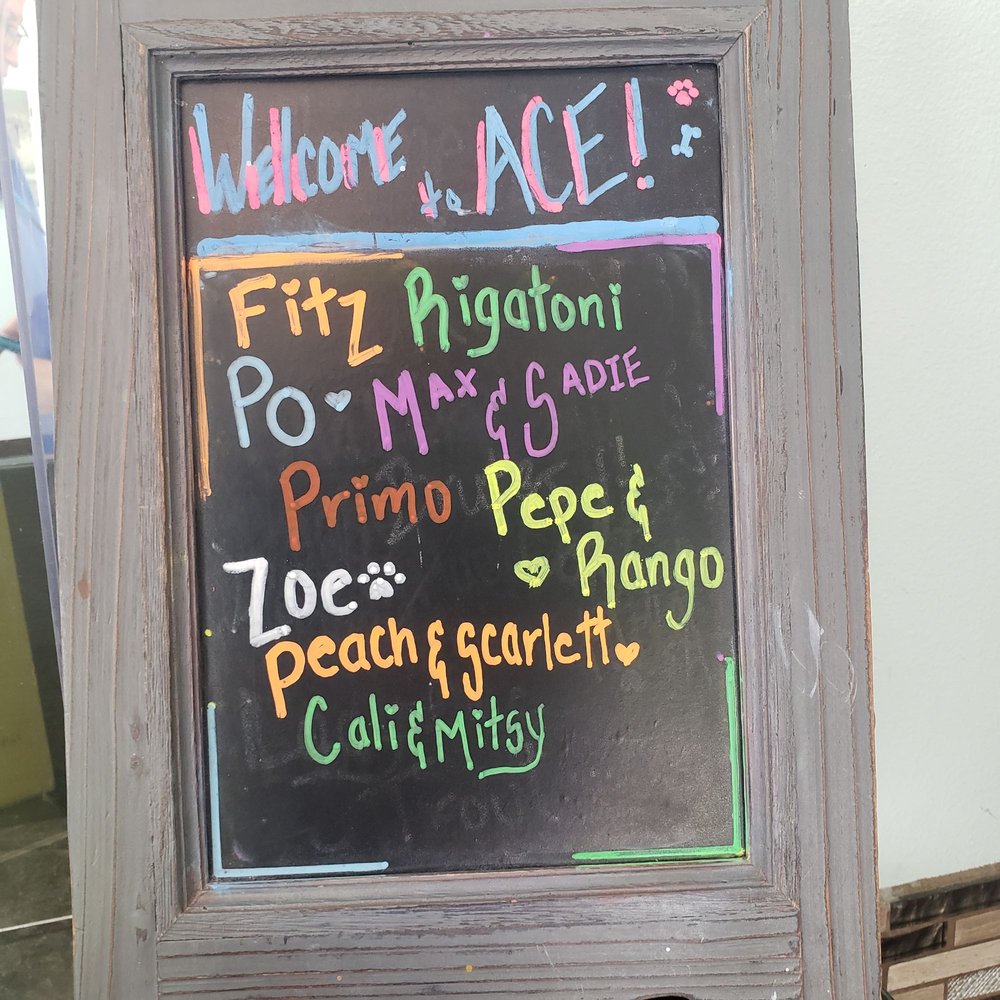 Welcome to ACE!
Fitz Rigatoni
Po Max & Sadie
Primo Pepe &
Zoe Rango
Peach & Scarlett
Cali & Mitsy